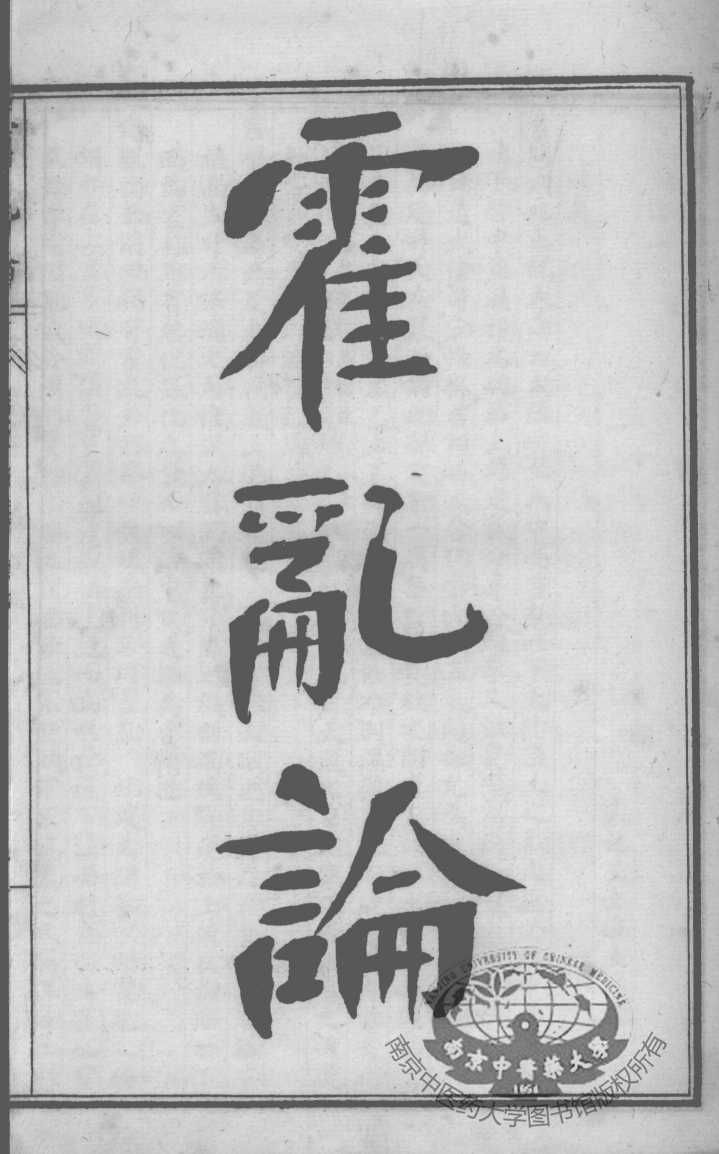 霍亂論
NANJING UNIVERSITY OF CHINESE MEDICINE
南京中醫藥大學
南京中医药大学图书馆版权所有